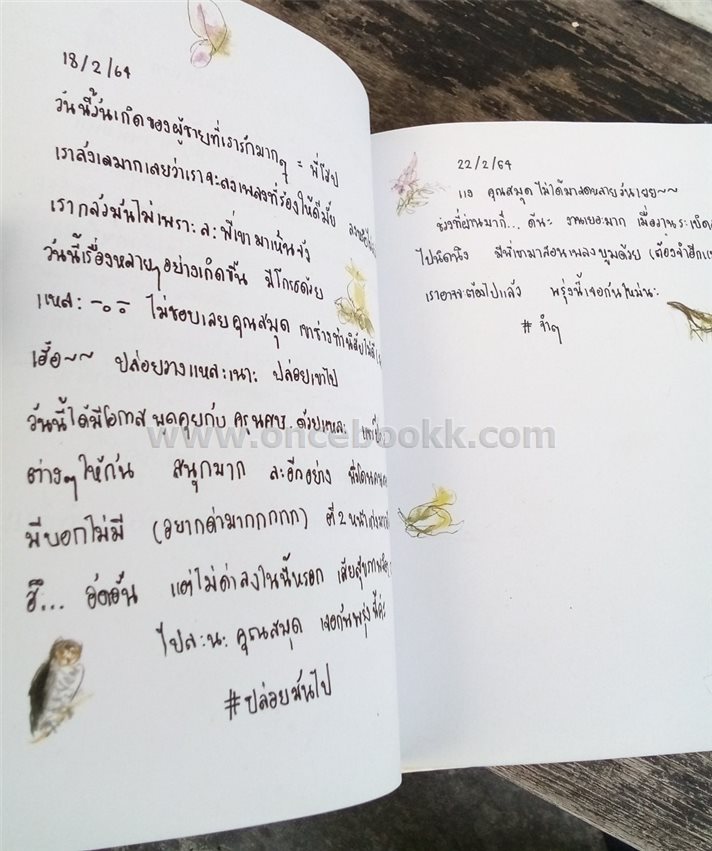 18/2/64
วันนี้วันเกิดของผู้ชายที่เรารักมากๆ = พี่โฮป
เราลังเลมากเลยว่าเราจะลงเพลงที่ร้องให้ดีมั้ย
เรากลัวมันไม่เพราะละพี่เขามาเห็นจัง
วันนี้เรื่องหลายๆอย่างเกิดขึ้น มีโกรธด้วย
แหละ ไม่ชอบเลยคุณสมุด เขาช่างทำนิสัยไม่ดี
เฮ้อ~~ ปล่อยวางแหละเนาะ ปล่อยเขาไป
วันนี้ได้มีโอกาสพูดคุยกับ ด้วยแหละ
ต่างๆให้กัน สนุกมาก ละอีกอย่าง
มีบอกไม่มี (อยากด่ามากกกกก) ตี 2
ฮึ... อัดอั้น แต่ไม่ด่าลงในนี้หรอก
ไปละนะ คุณสมุด เจอกันพรุ่งนี้ค่ะ
#ปล่อยมันไป
22/2/64
แง คุณสมุด ไม่ได้มาเลยหลายวันเลย~~
ช่วงที่ผ่านมาก็... งานเยอะมาก
ไปนิดนึง มีพี่เขามาสอนเพลงบูมด้วย
เราอาจจะต้องไปแล้ว พรุ่งนี้เจอกันใหม่นะ
# จำๆ
www.oncebookk.com